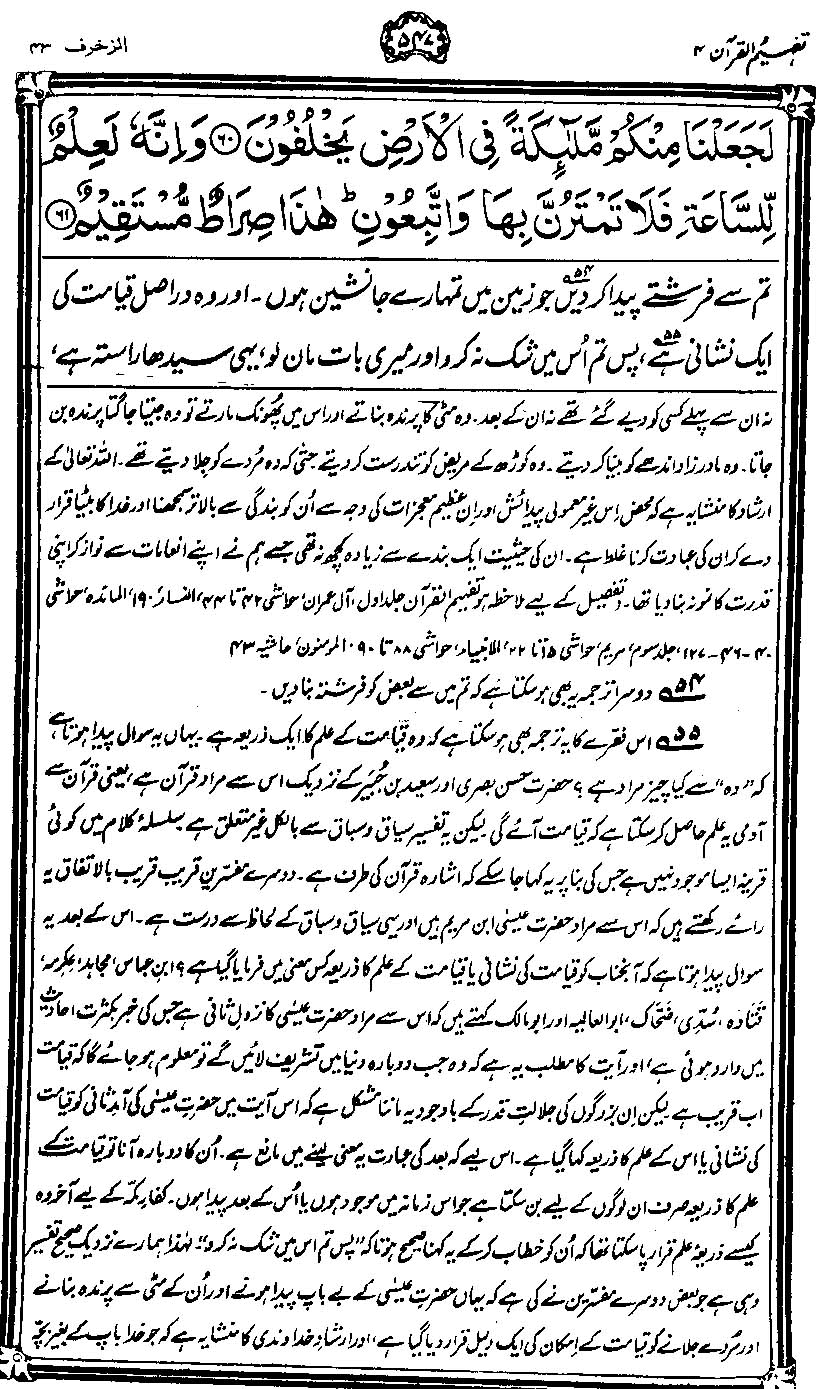 تفہیم القرآن ۴
۵۴۷
الزخرف ۴۳
لَجَعَلْنَا مِنْكُمْ مَّلٰٓئِكَةً فِی الْاَرْضِ یَخْلُفُوْنَ ۶۰ وَاِنَّهٗ لَعِلْمٌ
لِّلسَّاعَةِ فَلَا تَمْتَرُنَّ بِهَا وَاتَّبِعُوْنِ ؕ هٰذَا صِرَاطٌ مُّسْتَقِیْمٌ ۶۱
تم سے فرشتے پیدا کر دیں ۵۴ جو زمین میں تمہارے جانشین ہوں۔ اور وہ دراصل قیامت کی
ایک نشانی ہے ۵۵، پس تم اُس میں شک نہ کرو اور میری بات مان لو، یہی سیدھا راستہ ہے،
نہ ان سے پہلے کسی کو دیے گئے تھے نہ ان کے بعد۔ وہ مٹی کا پرندہ بناتے اور اس میں پھونک مارتے تو وہ جیتا جاگتا پرندہ بن
جاتا۔ وہ مادر زاد اندھے کو بینا کر دیتے۔ وہ کوڑھ کے مریض کو تندرست کر دیتے حتیٰ کہ وہ مُردے کو جلا دیتے تھے۔ اللہ تعالیٰ کے
ارشاد کا منشا یہ ہے کہ محض اِس غیر معمولی پیدائش اور اِن عظیم معجزات کی وجہ سے اُن کو بندگی سے بالاتر سمجھنا اور خدا کا بیٹا قرار
دے کر ان کی عبادت کرنا غلط ہے۔ ان کی حیثیت ایک بندے سے زیادہ کچھ نہ تھی جسے ہم نے اپنے انعامات سے نواز کر اپنی
قدرت کا نمونہ بنا دیا تھا۔ (تفصیل کے لیے ملاحظہ ہو تفہیم القرآن جلد اول، آل عمران، حواشی ۴۲ تا ۴۴، النساء، ۱۹۰، المائدہ، حواشی
۴۰-۴۶-۱۲۷، جلد سوم، مریم، حواشی ۱۵ تا ۲۲، الانبیاء، حواشی ۸۸ تا ۹۰، المومنون، حاشیہ ۴۳
۵۴ دوسرا ترجمہ یہ بھی ہو سکتا ہے کہ تم میں سے بعض کو فرشتہ بنا دیں۔
۵۵ اس فقرے کا یہ ترجمہ بھی ہو سکتا ہے کہ وہ قیامت کے علم کا ایک ذریعہ ہے۔ یہاں یہ سوال پیدا ہوتا ہے
کہ "وہ" سے کیا چیز مراد ہے؟ حضرت حسن بصری اور سعید بن جُبَیر کے نزدیک اس سے مراد قرآن ہے، یعنی قرآن سے
آدمی یہ علم حاصل کر سکتا ہے کہ قیامت آئے گی لیکن یہ تفسیر سیاق و سباق سے بالکل غیر متعلق ہے۔ سلسلۂ کلام میں کوئی
قرینہ ایسا موجود نہیں ہے جس کی بنا پر یہ کہا جا سکے کہ اشارہ قرآن کی طرف ہے۔ دوسرے مفسرین قریب قریب بالاتفاق یہ
رائے رکھتے ہیں کہ اس سے مراد حضرت عیسیٰ ابن مریم ہیں اور یہی سیاق و سباق کے لحاظ سے درست ہے۔ اس کے بعد یہ
سوال پیدا ہوتا ہے کہ آنجناب کو قیامت کی نشانی یا قیامت کے علم کا ذریعہ کس معنی میں فرمایا گیا ہے؟ ابن عباس، مجاہد، عکرمہ،
قتادہ، سُدّی، ضحّاک، ابو العالیہ اور ابو مالک کہتے ہیں کہ اس سے مراد حضرت عیسیٰ کا نزول ثانی ہے جس کی خبر بکثرت احادیث
میں وارد ہوئی ہے، اور آیت کا مطلب یہ ہے کہ وہ جب دوبارہ دنیا میں تشریف لائیں گے تو معلوم ہو جائے گا کہ قیامت
اب قریب ہے۔ لیکن اِن بزرگوں کی جلالتِ قدر کے باوجود یہ ماننا مشکل ہے کہ اس آیت میں حضرت عیسیٰ کی آمدِ ثانی کو قیامت
کی نشانی یا اس کے علم کا ذریعہ کہا گیا ہے۔ اس لیے کہ بعد کی عبارت یہ معنی لینے میں مانع ہے۔ اُن کا دوبارہ آنا تو قیامت کے
علم کا ذریعہ صرف ان لوگوں کے لیے بن سکتا ہے جو اس زمانہ میں موجود ہوں یا اُس کے بعد پیدا ہوں۔ کفارِ مکہ کے لیے آخر وہ
کیسے ذریعۂ علم قرار پا سکتا تھا کہ اُن کو خطاب کر کے یہ کہنا صحیح ہوتا کہ "پس تم اس میں شک نہ کرو"۔ لہٰذا ہمارے نزدیک صحیح تفسیر
وہی ہے جو بعض دوسرے مفسرین نے کی ہے کہ یہاں حضرت عیسیٰ کے بے باپ پیدا ہونے اور اُن کے مٹی سے پرندہ بنانے
اور مُردے جلانے کو قیامت کے اِمکان کی ایک دلیل قرار دیا گیا ہے، اور ارشادِ خداوندی کا منشا یہ ہے کہ جو خدا باپ کے بغیر بچّہ